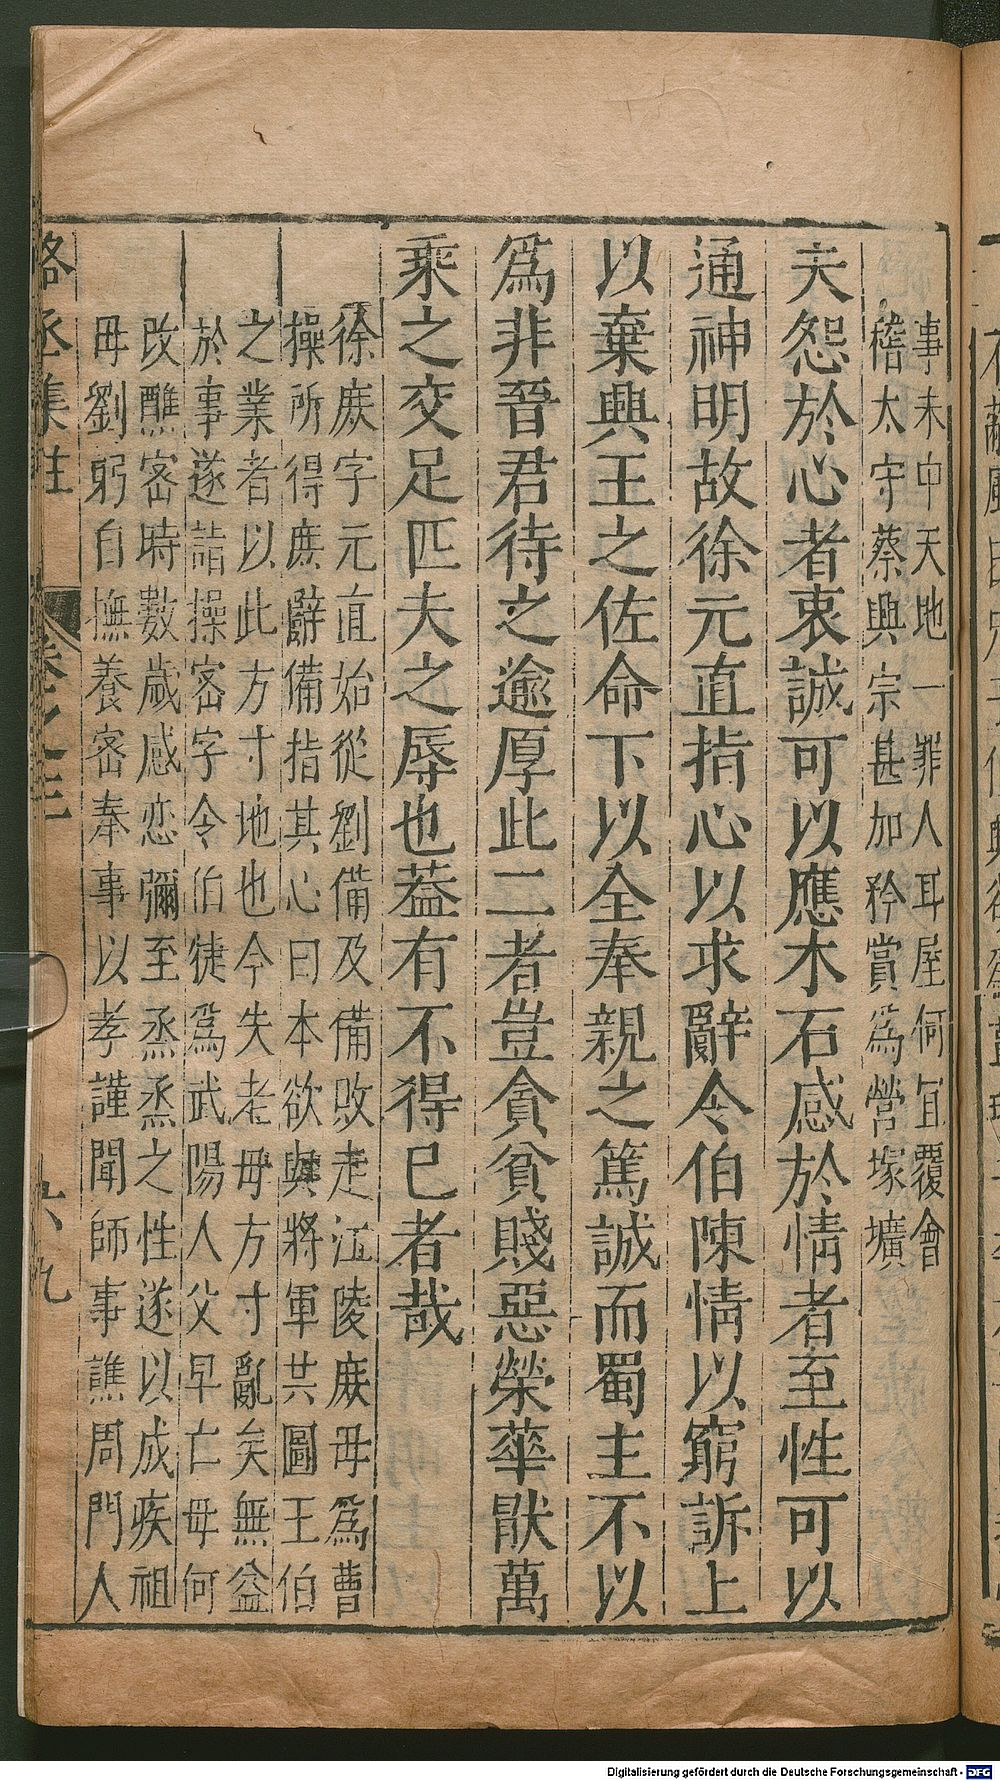 事未中天地一罪人耳屋何宜覆會
稽太守蔡興宗甚加矜賞爲營塚壙
夫怨於心者衷誠可以應木石感於情者至性可以
通神明故徐元直指心以求辭令伯陳情以窮訴上
以棄興王之佐命下以全奉親之篤誠而蜀主不以
爲非晉君待之逾厚此二者豈貪貧賤惡榮華猒萬
乘之交足匹夫之辱也葢有不得已者哉
徐庶字元直始從劉備及備敗走江陵庶毋爲曹
操所得庶辭備指其心曰本欲與將軍共圖王伯
之業者以此方寸地也今失老毋方寸亂矣無益
於事遂詣操宻字令伯徤爲武陽人父早亡毋何
改醮宻時數歲感恋彌至烝烝之性遂以成疾祖
毋劉躬自撫養宻奉事以孝謹聞師事譙周門人
駱丞集註
卷之三
六九
Digitalisierung gefördert durch die Deutsche Forschungsgemeinschaft - DFG